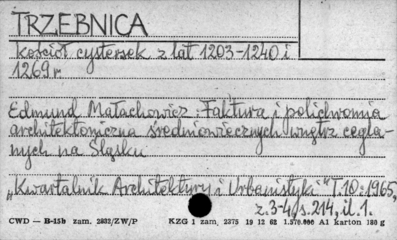 TRZEBNICA
Kościół cystersek z lat 1203-1240 i
1269 r.
Edmund Małachowicz: Faktura i polichromia
architektoniczna średniowiecznych wnętrz cegla-
nych na Śląsku
„Kwartalnik Architektury i Urbanistyki" T.10:1965,
z.3-4, s.214, il.1.
CWD — B-15b zam. 2832/ZW/P KZG 1 zam, 2375 19 12 62 1.576.000 A1 karton 180 g